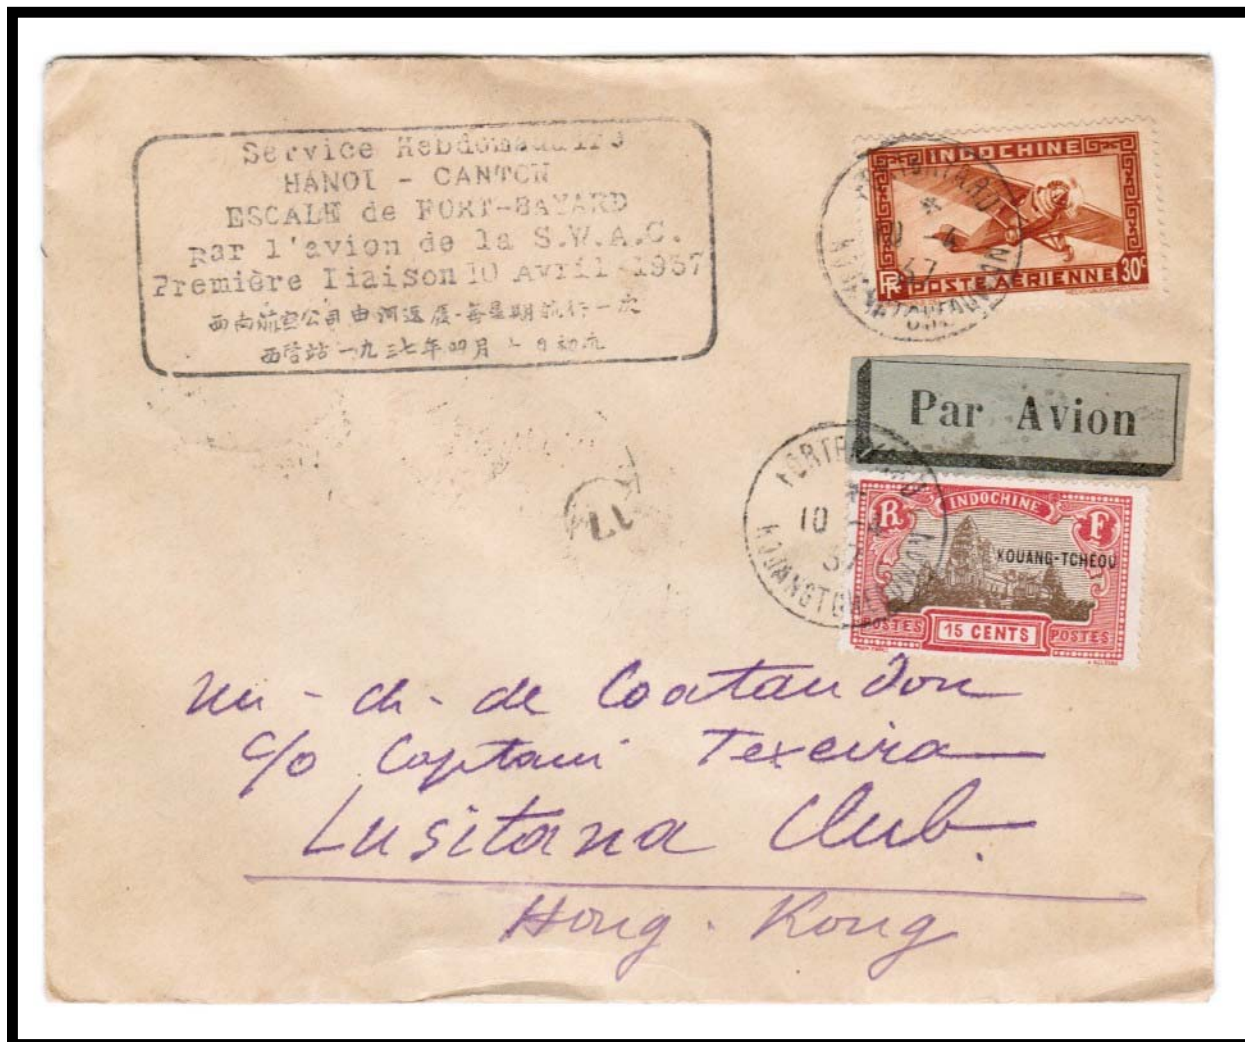 Service Hebdomadaire
HANOI - CANTON
ESCALE de FORT-BAYARD
Par l'avion de la S.W.A.C.
Première liaison 10 Avril 1937
西南航空公司由河返廣·每星期航行一次
西營站一九三七年四月十日初航
INDOCHINE
RF POSTE AÉRIENNE 30c
Par Avion
FORT BAYARD
10 -4
37
KOUANGTCHEOUWAN
R INDOCHINE F
KOUANG-TCHÉOU
POSTES 15 CENTS POSTES
- ch - de Coataudon
c/o Captain Texeira
Lusitana Club.
Hong-Kong